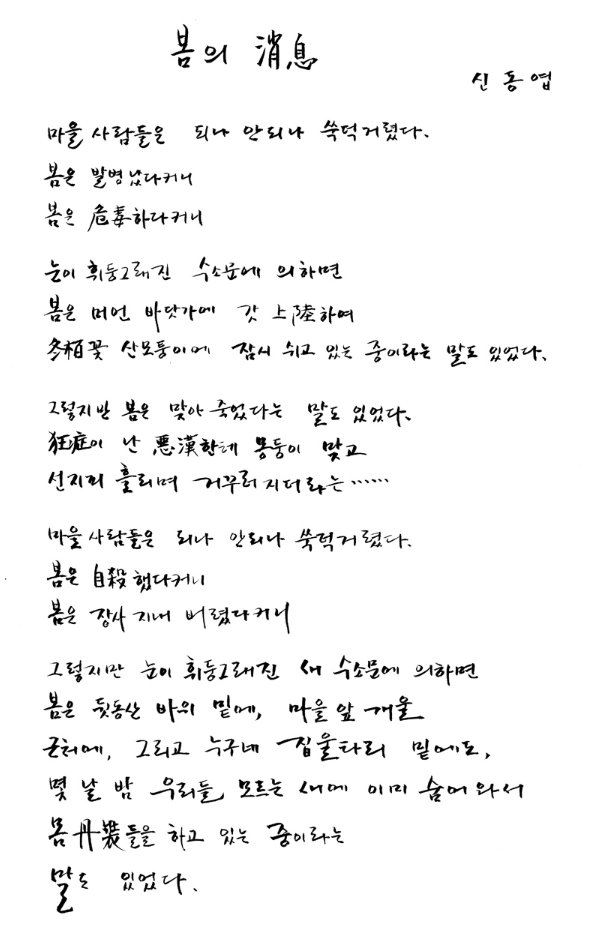 봄의 消息
신동엽
마을 사람들은 되나 안되나 쑥덕거렸다.
봄은 발병났다커니
봄은 危毒하다커니
눈이 휘둥그래진 수소문에 의하면
봄은 머언 바닷가에 갓 上陸하여
冬栢꽃 산모퉁이에 잠시 쉬고 있는 중이라는 말도 있었다.
그렇지만 봄은 맞아 죽었다는 말도 있었다.
狂症이 난 惡漢한테 몽둥이 맞고
선지피 흘리며 거꾸러지더라는……
마을 사람들은 되나 안되나 쑥덕거렸다.
봄은 自殺했다커니
봄은 장사 지내 버렸다커니
그렇지만 눈이 휘둥그래진 새 수소문에 의하면
봄은 뒷동산 바위 밑에, 마을 앞 개울
근처에, 그리고 누구네 집울타리 밑에도,
몇 날 밤 우리들 모르는 새에 이미 숨어 와서
봄丹裝들을 하고 있는 중이라는
말도 있었다.